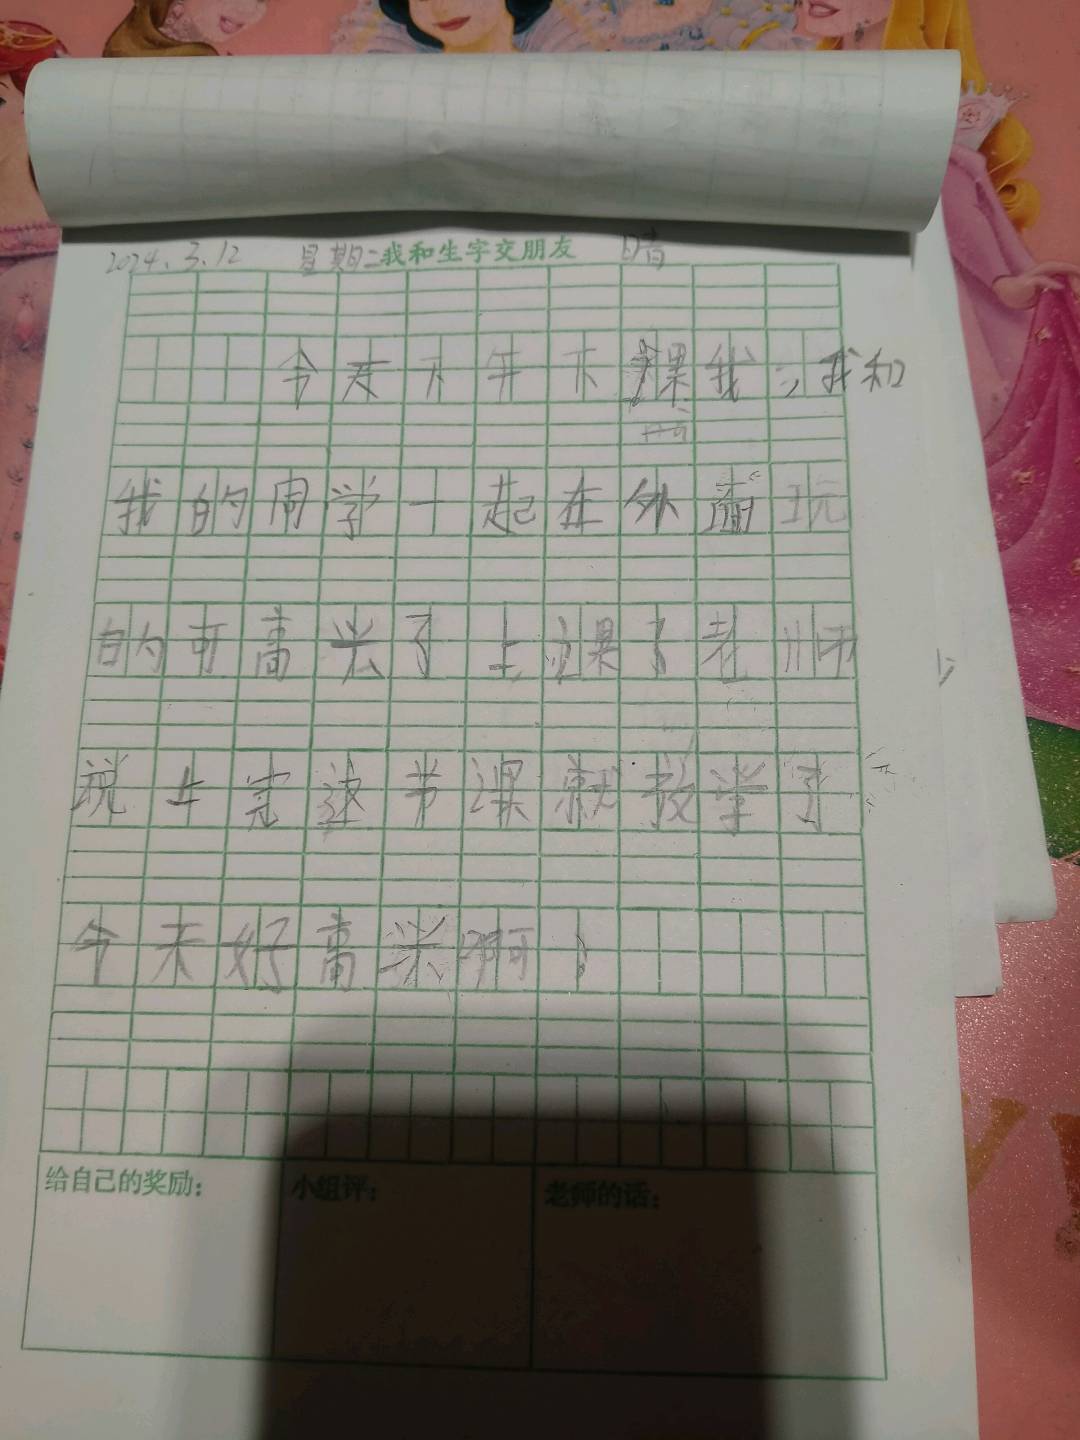 2024.3.12 星期二 我和生字交朋友 晴
今天下午下课我,我和
我的同学一起在外面玩
的可高兴了上课了老师
说上完这节课就放学了
今天好高兴啊!
给自己的奖励: 小组评: 老师的话: